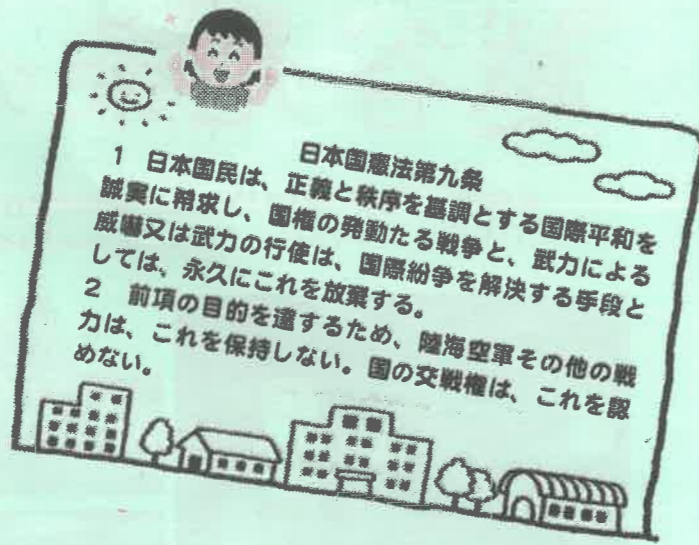 日本国憲法第九条
1 日本国民は、正義と秩序を基調とする国際平和を
誠実に希求し、国権の発動たる戦争と、武力による
威嚇又は武力の行使は、国際紛争を解決する手段と
しては、永久にこれを放棄する。
2 前項の目的を達するため、陸海空軍その他の戦
力は、これを保持しない。国の交戦権は、これを認
めない。